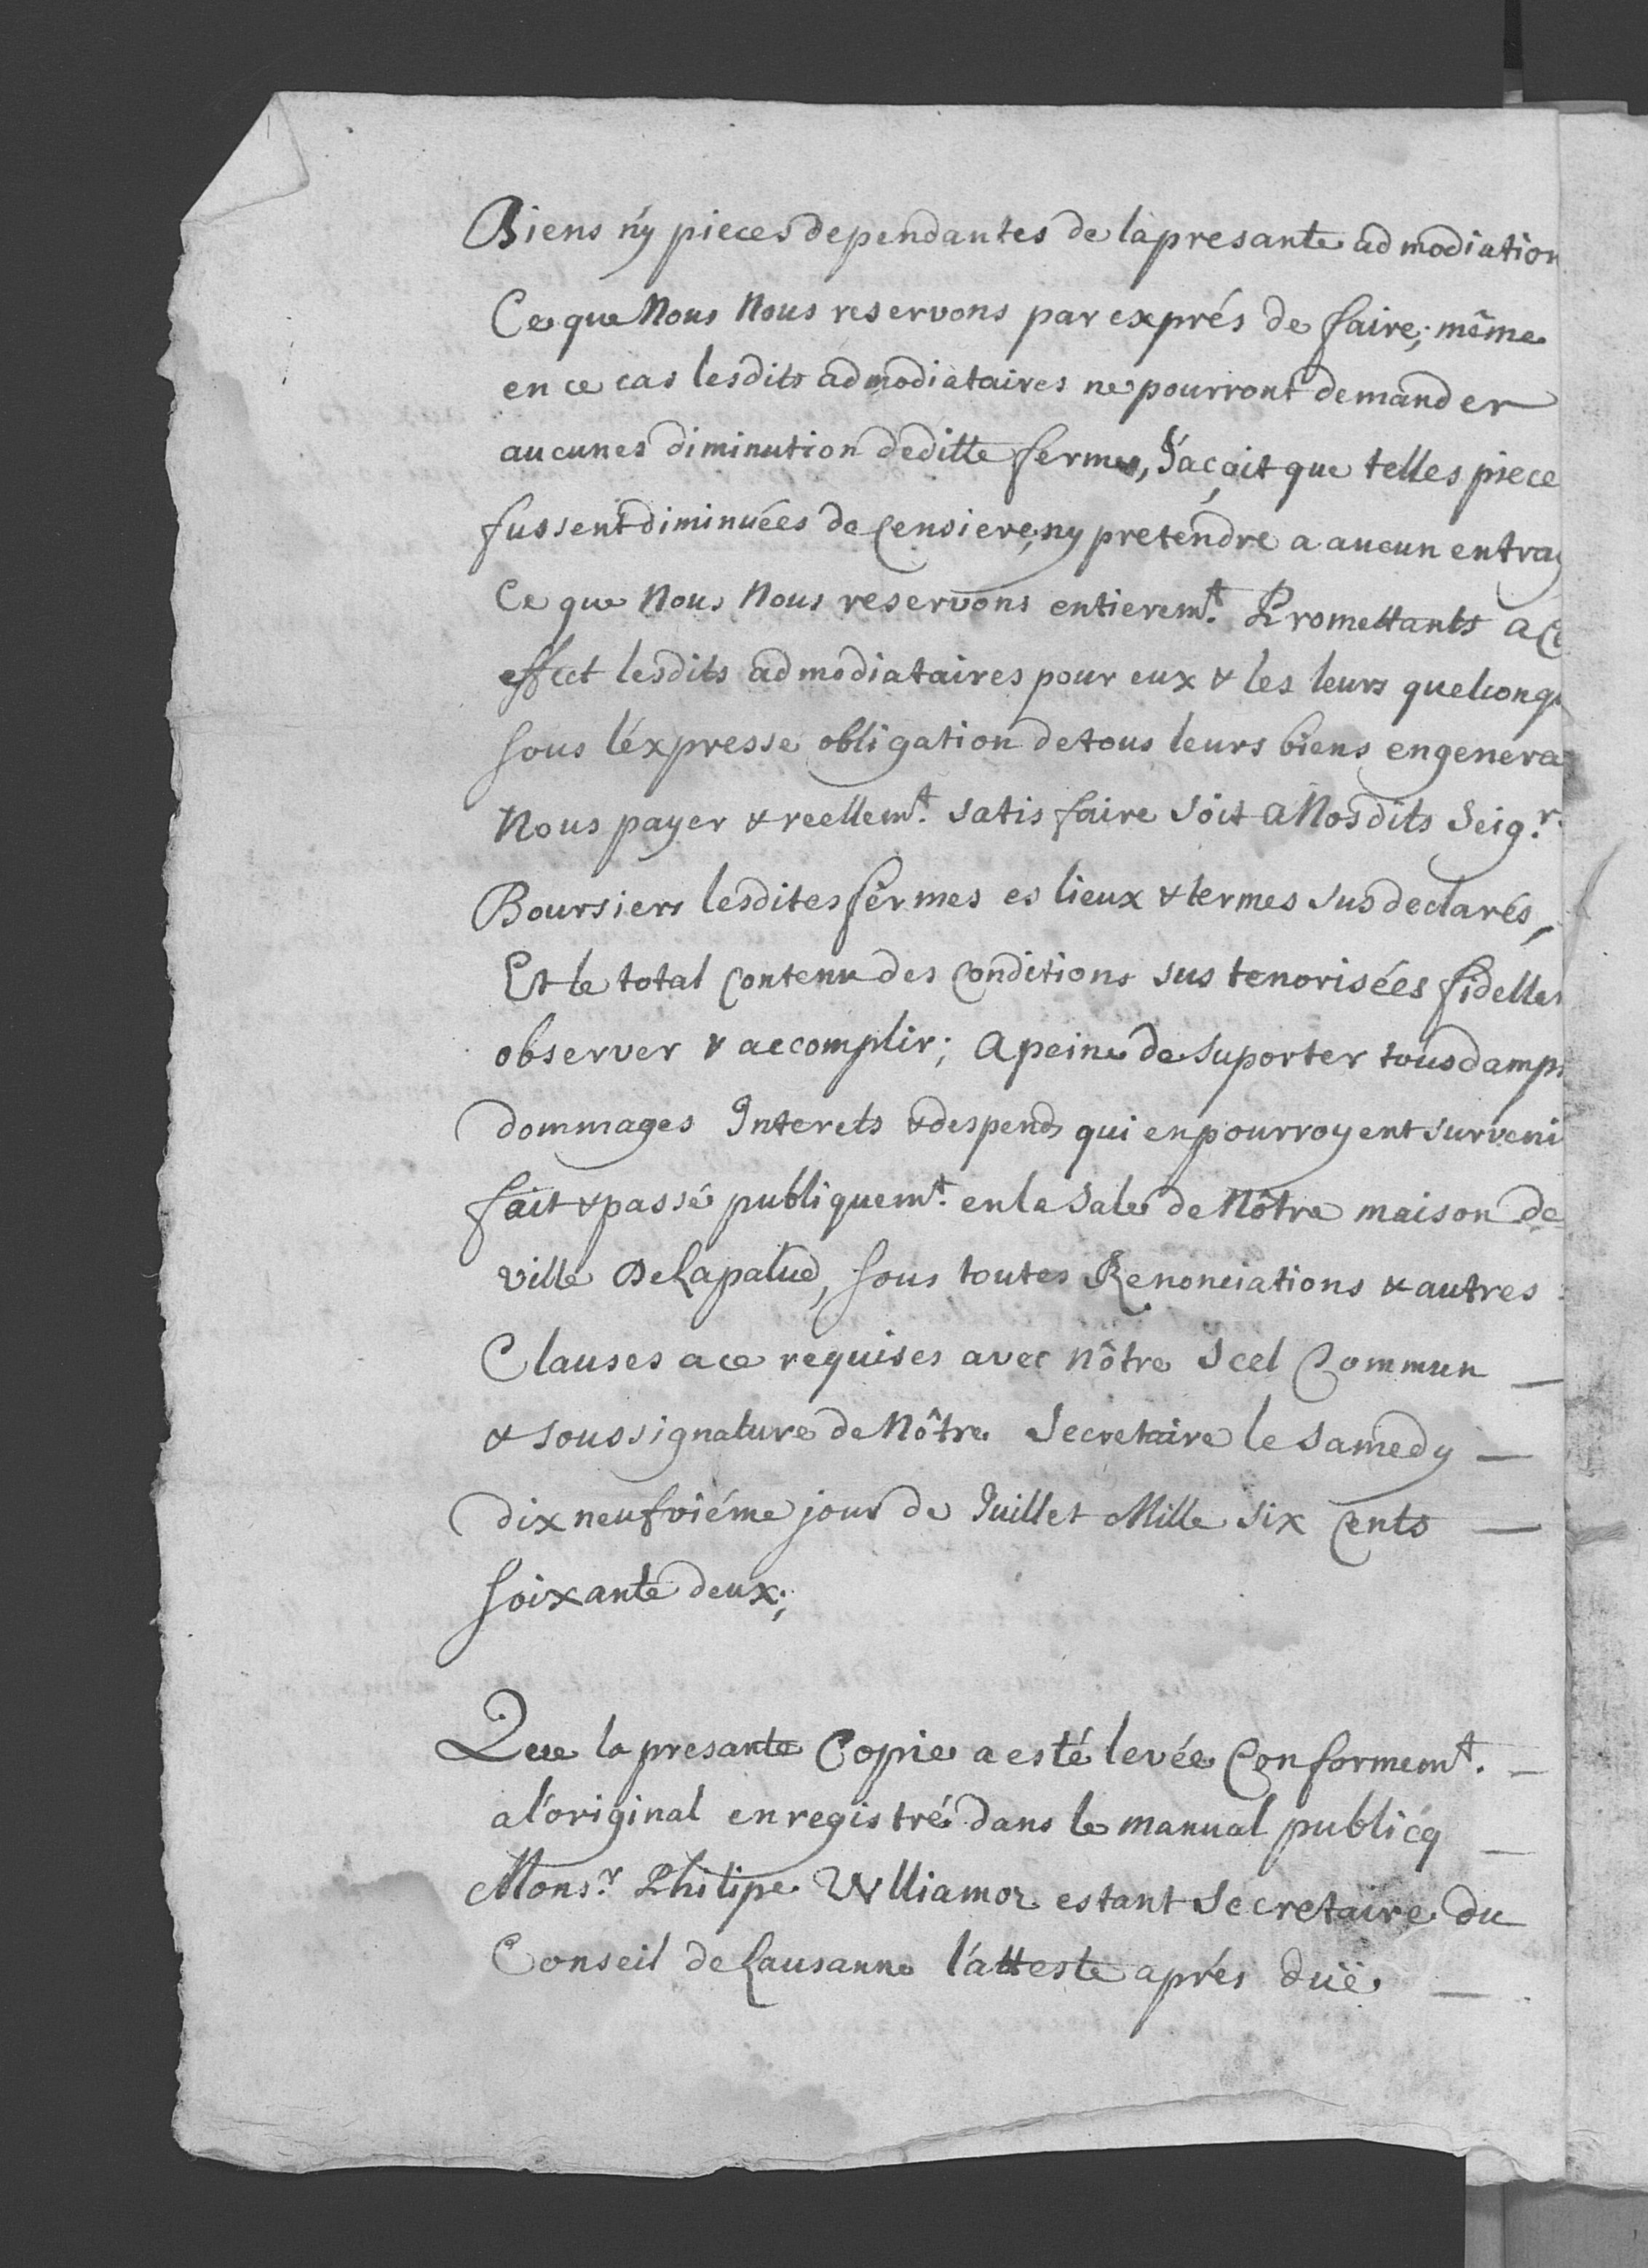 Biens n'y pieces dependantes de la presante admodiation
Ce que Nous Nous reservons par exprés de faire; même
en ce cas lesdits admodiataires ne pourront demander
aucunes diminution de ditte ferme, Jaçoit que telles piece
fussent diminuées de Censiere, ny pretendre a aucun entra
Ce que Nous Nous reservons entierem.t Promettants a ce
effect lesdits admodiataires pour eux & les leurs quelconq
sous l'éxpresse obligation de tous leurs biens en genera
Nous payer & reellem.t satisfaire soit a Nosdits Seig.r
Boursiers lesdites fermes es lieux & termes susdeclarés,
Et le total Contenu des Conditions sus tenorisées fidelle
observer & accomplir; a peine de suporter tous damp
dommages Interets & despends qui en pourroyent surveni
fait & passé publiquem.t en la Sale de Nôtre maison de
ville De Lapalud, sous toutes Renonciations & autres
Clauses a ce requises avec nôtre Scel Commun —
& soussignature de Nôtre Secretaire le samedy —
dix neufviéme jour de Juillet Mille six Cents —
soixante deux;
Que la presante Copie a esté levée Conformem.t —
a l'original enregistré dans le manual publicq —
Mons.r Philipe Wlliamoz estant Secretaire du
Conseil de Lausanne l'atteste aprés duë —